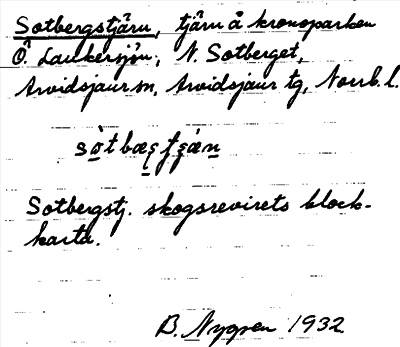 Sotbergstjärn, tjärn å kronoparken
Ö. Laukersjön, N. Sotberget,
Arvidsjaur sn, Arvidsjaur tg, Norrb. l.
Sotbergstj. skogsrevirets block-
karta.
B. Nygren 1932